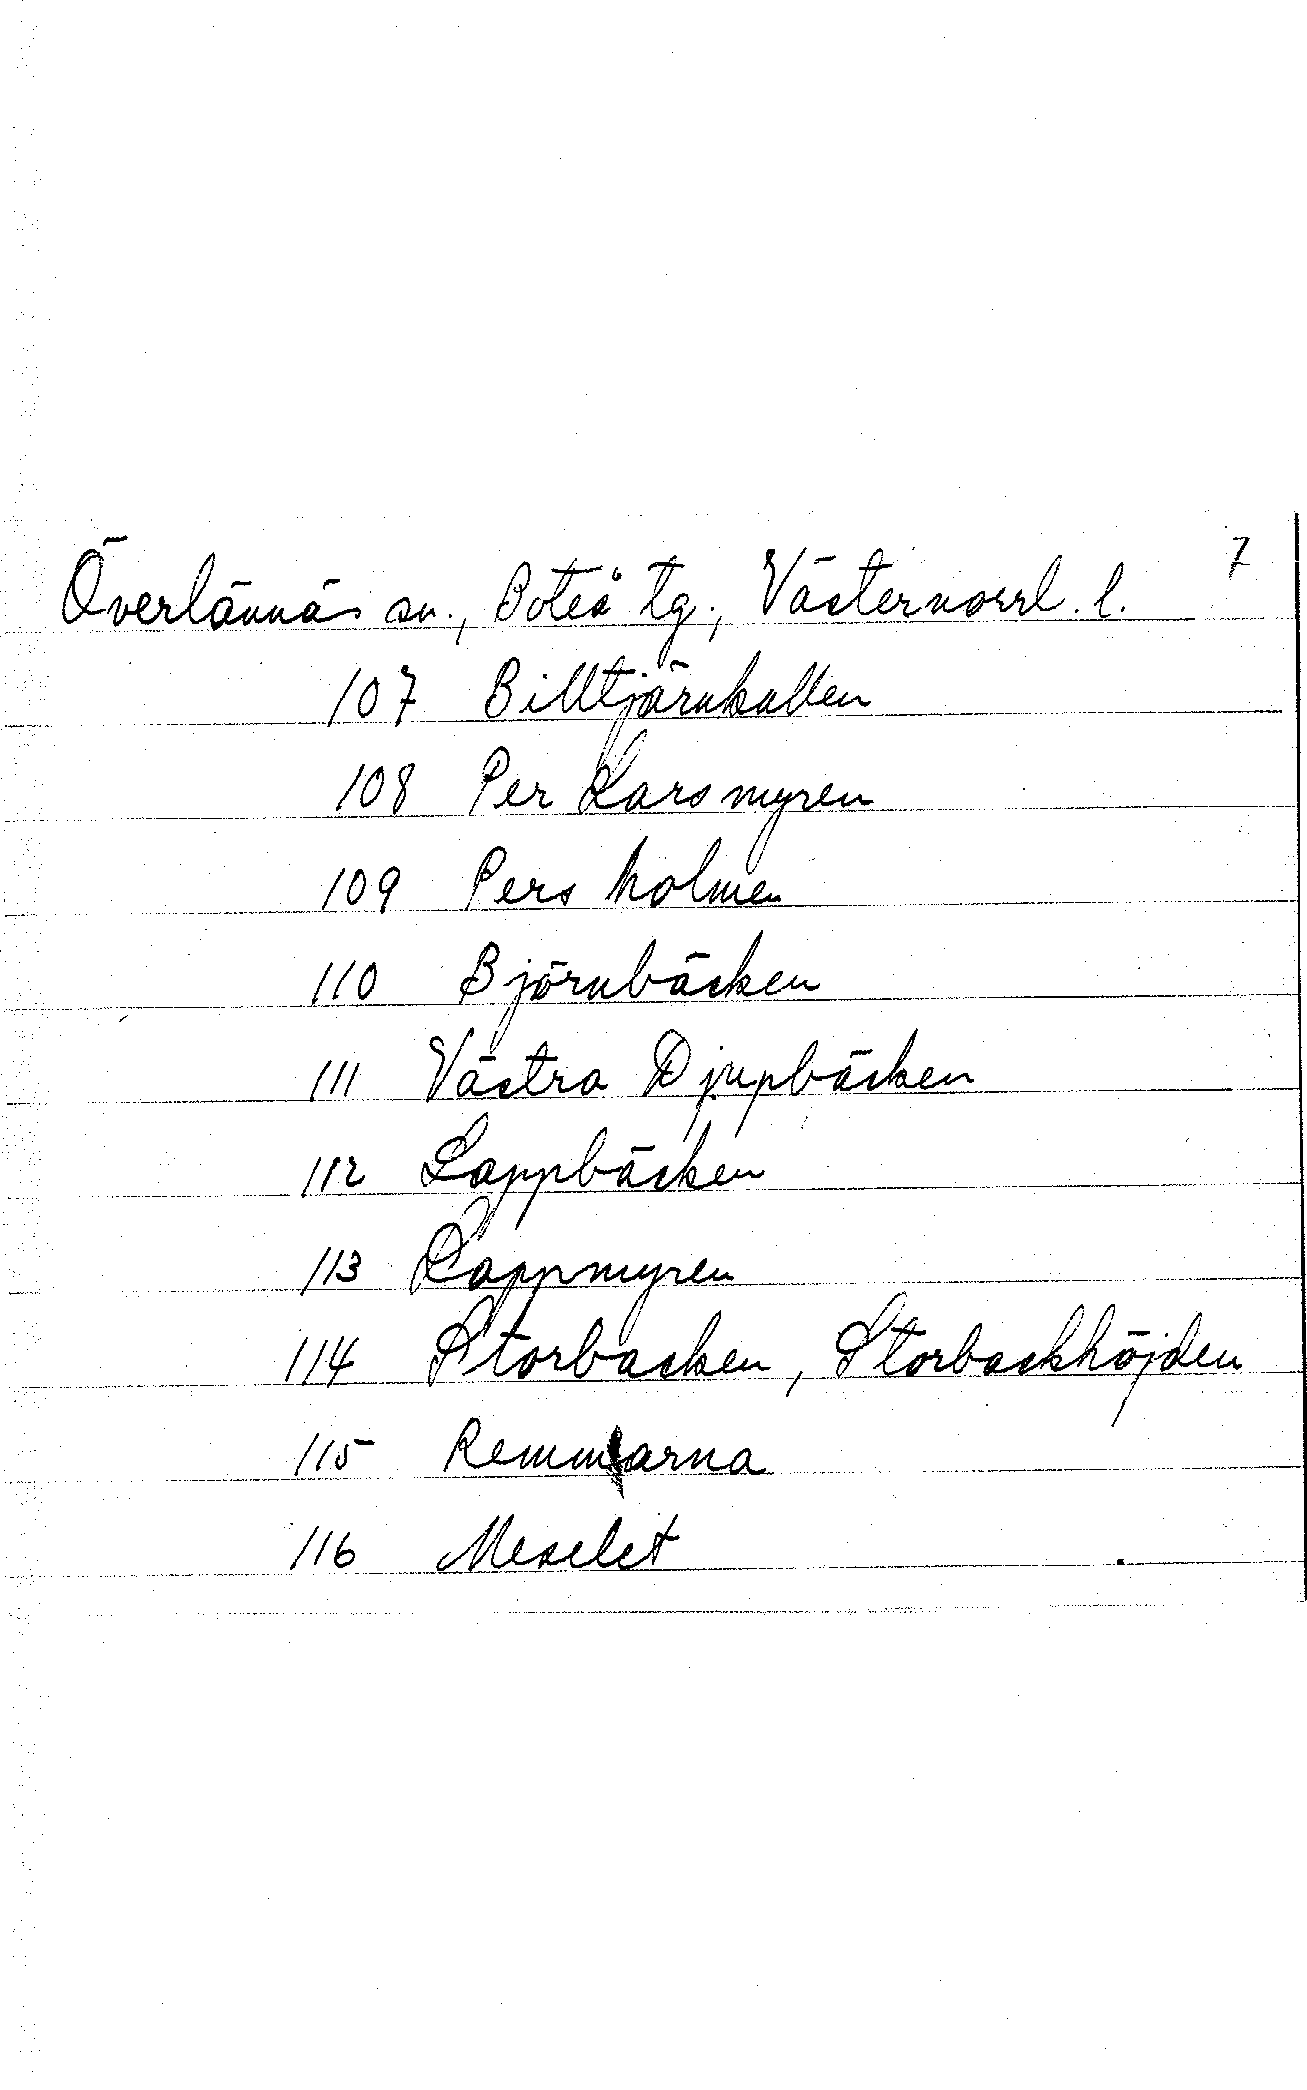 Överlännäs sn., Boteå tg., Västernorrl. l. 7
107 Billtjärnkullen
108 Per Larsmyren
109 Pers holmen
110 Björnbäcken
111 Västra Djupbäcken
112 Lappbäcken
113 Lappmyren
114 Storbacken, Storbackhöjden
115 Remmarna
116 Meselet